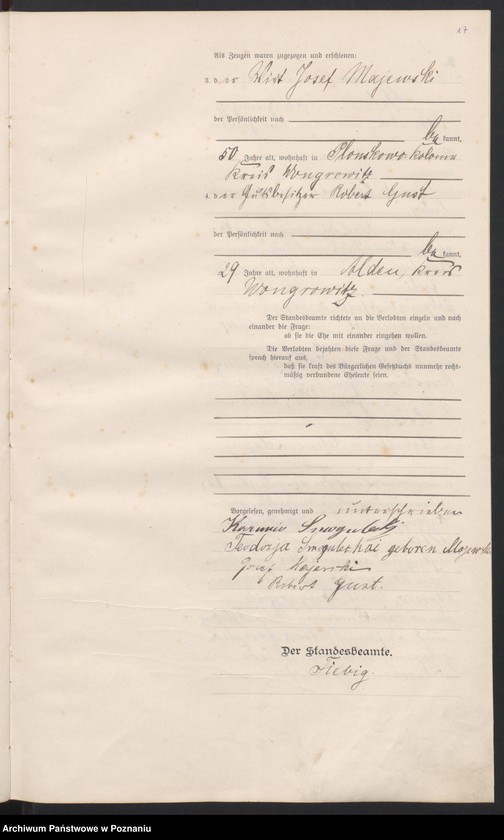 17
Als Zeugen waren zugezogen und erschienen:
3. d er Wirt Josef Majewski
der Persönlichkeit nach
be kannt,
50 Jahre alt, wohnhaft in Plonskowo kolonie
Kreis Wongrowitz
4. d er Gutsbesitzer Robert Gust
der Persönlichkeit nach
be kannt,
29 Jahre alt, wohnhaft in Alden, Kreis
Wongrowitz.
Der Standesbeamte richtete an die Verlobten einzeln und nach
einander die Frage:
ob sie die Ehe mit einander eingehen wollen.
Die Verlobten bejahten diese Frage und der Standesbeamte
sprach hierauf aus,
daß sie kraft des Bürgerlichen Gesetzbuchs nunmehr recht-
mäßig verbundene Eheleute seien.
Vorgelesen, genehmigt und unterschrieben
Smogulecki
Teodozja geboren Majewska
Josef Majewski
Robert Gust.
Der Standesbeamte.
Fiebig.
Archiwum Państwowe w Poznaniu